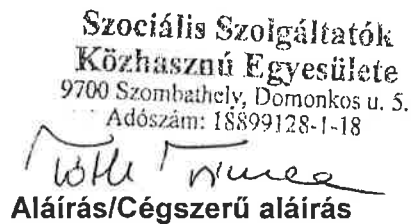 Szociális Szolgáltatók
Közhasznú Egyesülete
9700 Szombathely, Domonkos u. 5.
Adószám: 18899128-1-18
Tóth Tímea
Aláírás/Cégszerű aláírás